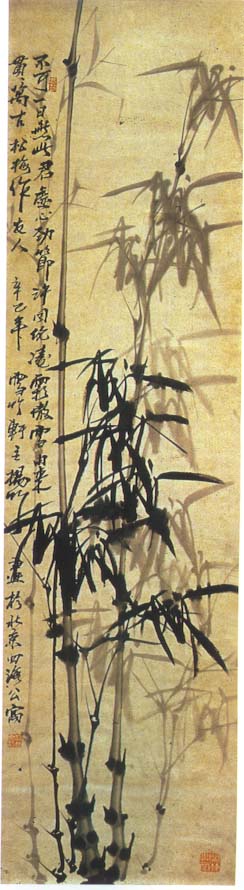 不可一日無此君虛心勁節許同凌霜傲雪由來
貫萬古松梅作友人 辛巳年 雪竹軒主楊 畫於北京四海公寓